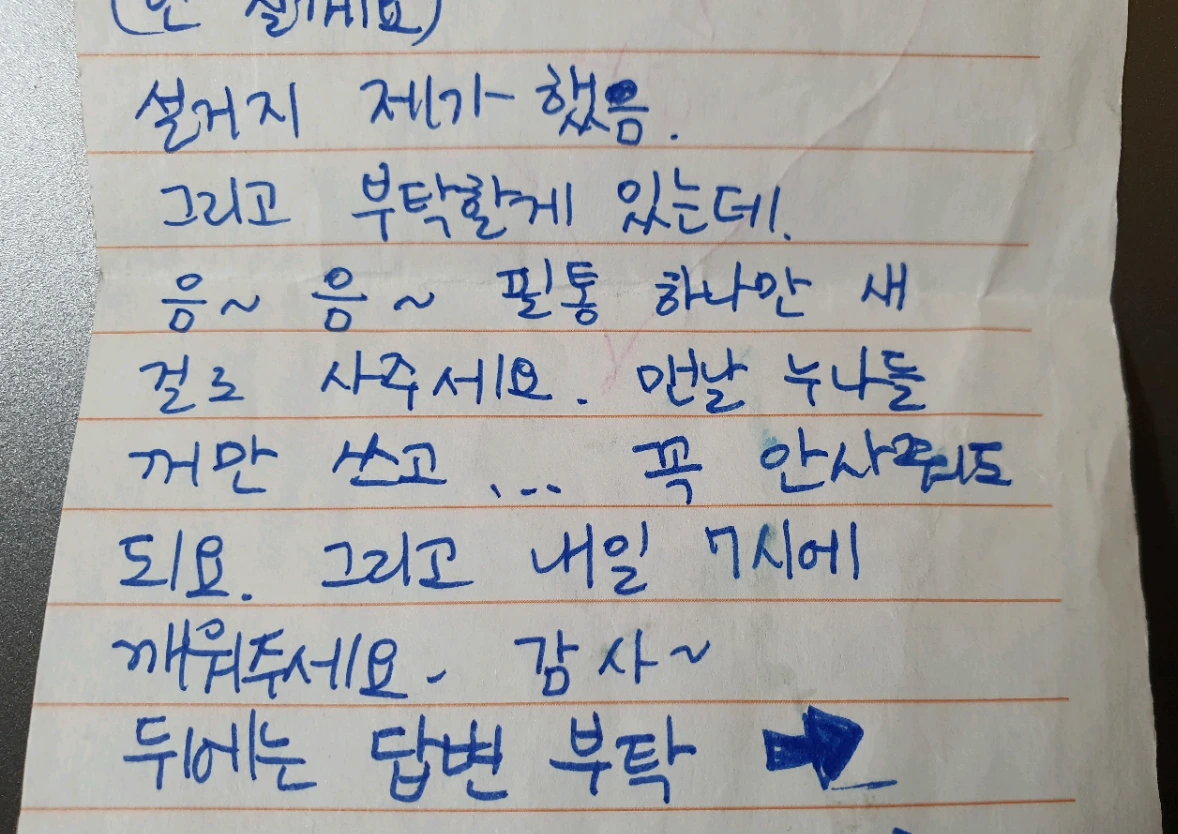 설거지 제가 했음.
그리고 부탁할게 있는데.
음~ 음~ 필통 하나만 새
걸로 사주세요. 맨날 누나들
꺼만 쓰고 ... 꼭 안사줘도
되요. 그리고 내일 7시에
깨워주세요. 감사~
뒤에는 답변 부탁 ➡